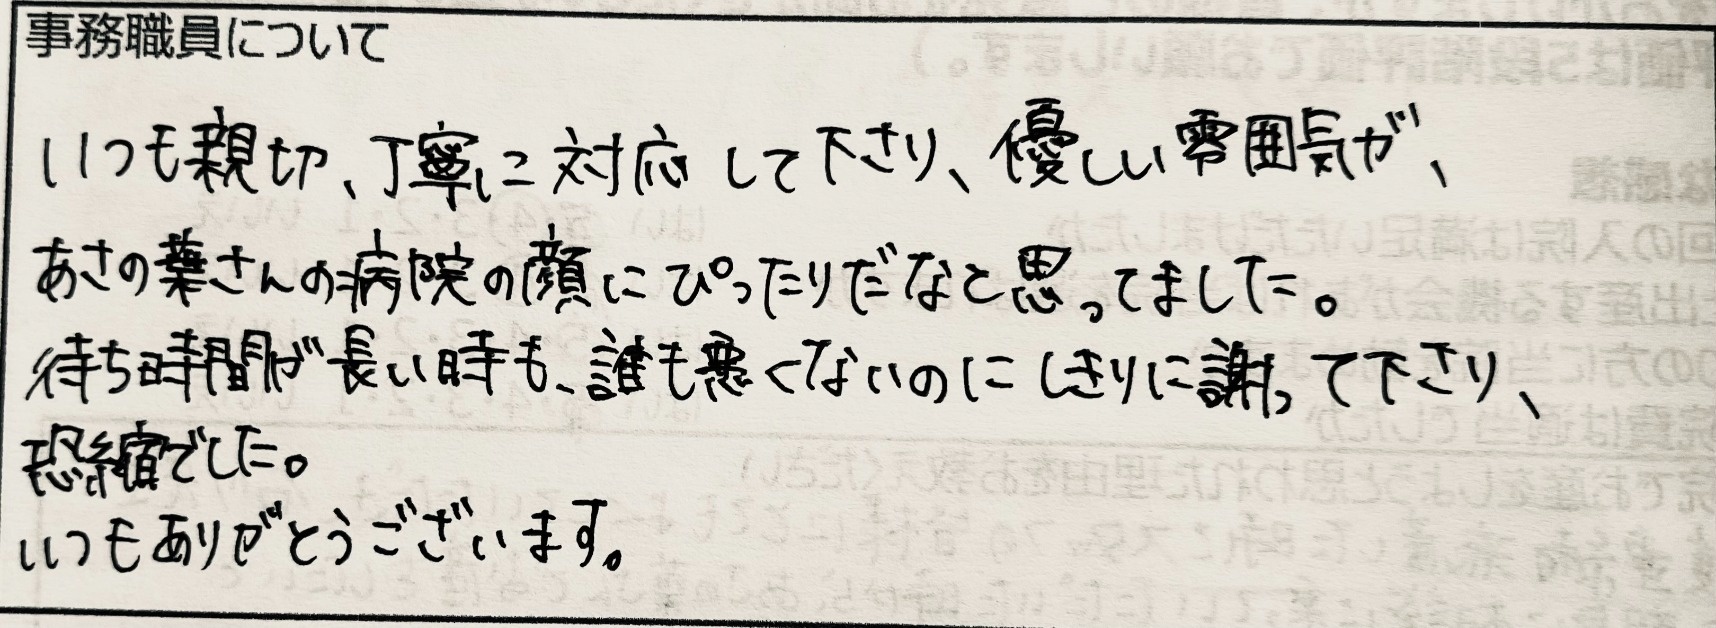 事務職員について
いつも親切、丁寧に対応して下さり、優しい雰囲気が、
あさの葉さんの病院の顔にぴったりだなと思ってました。
待ち時間が長い時も、誰も悪くないのにしきりに謝って下さり、
恐縮でした。
いつもありがとうございます。